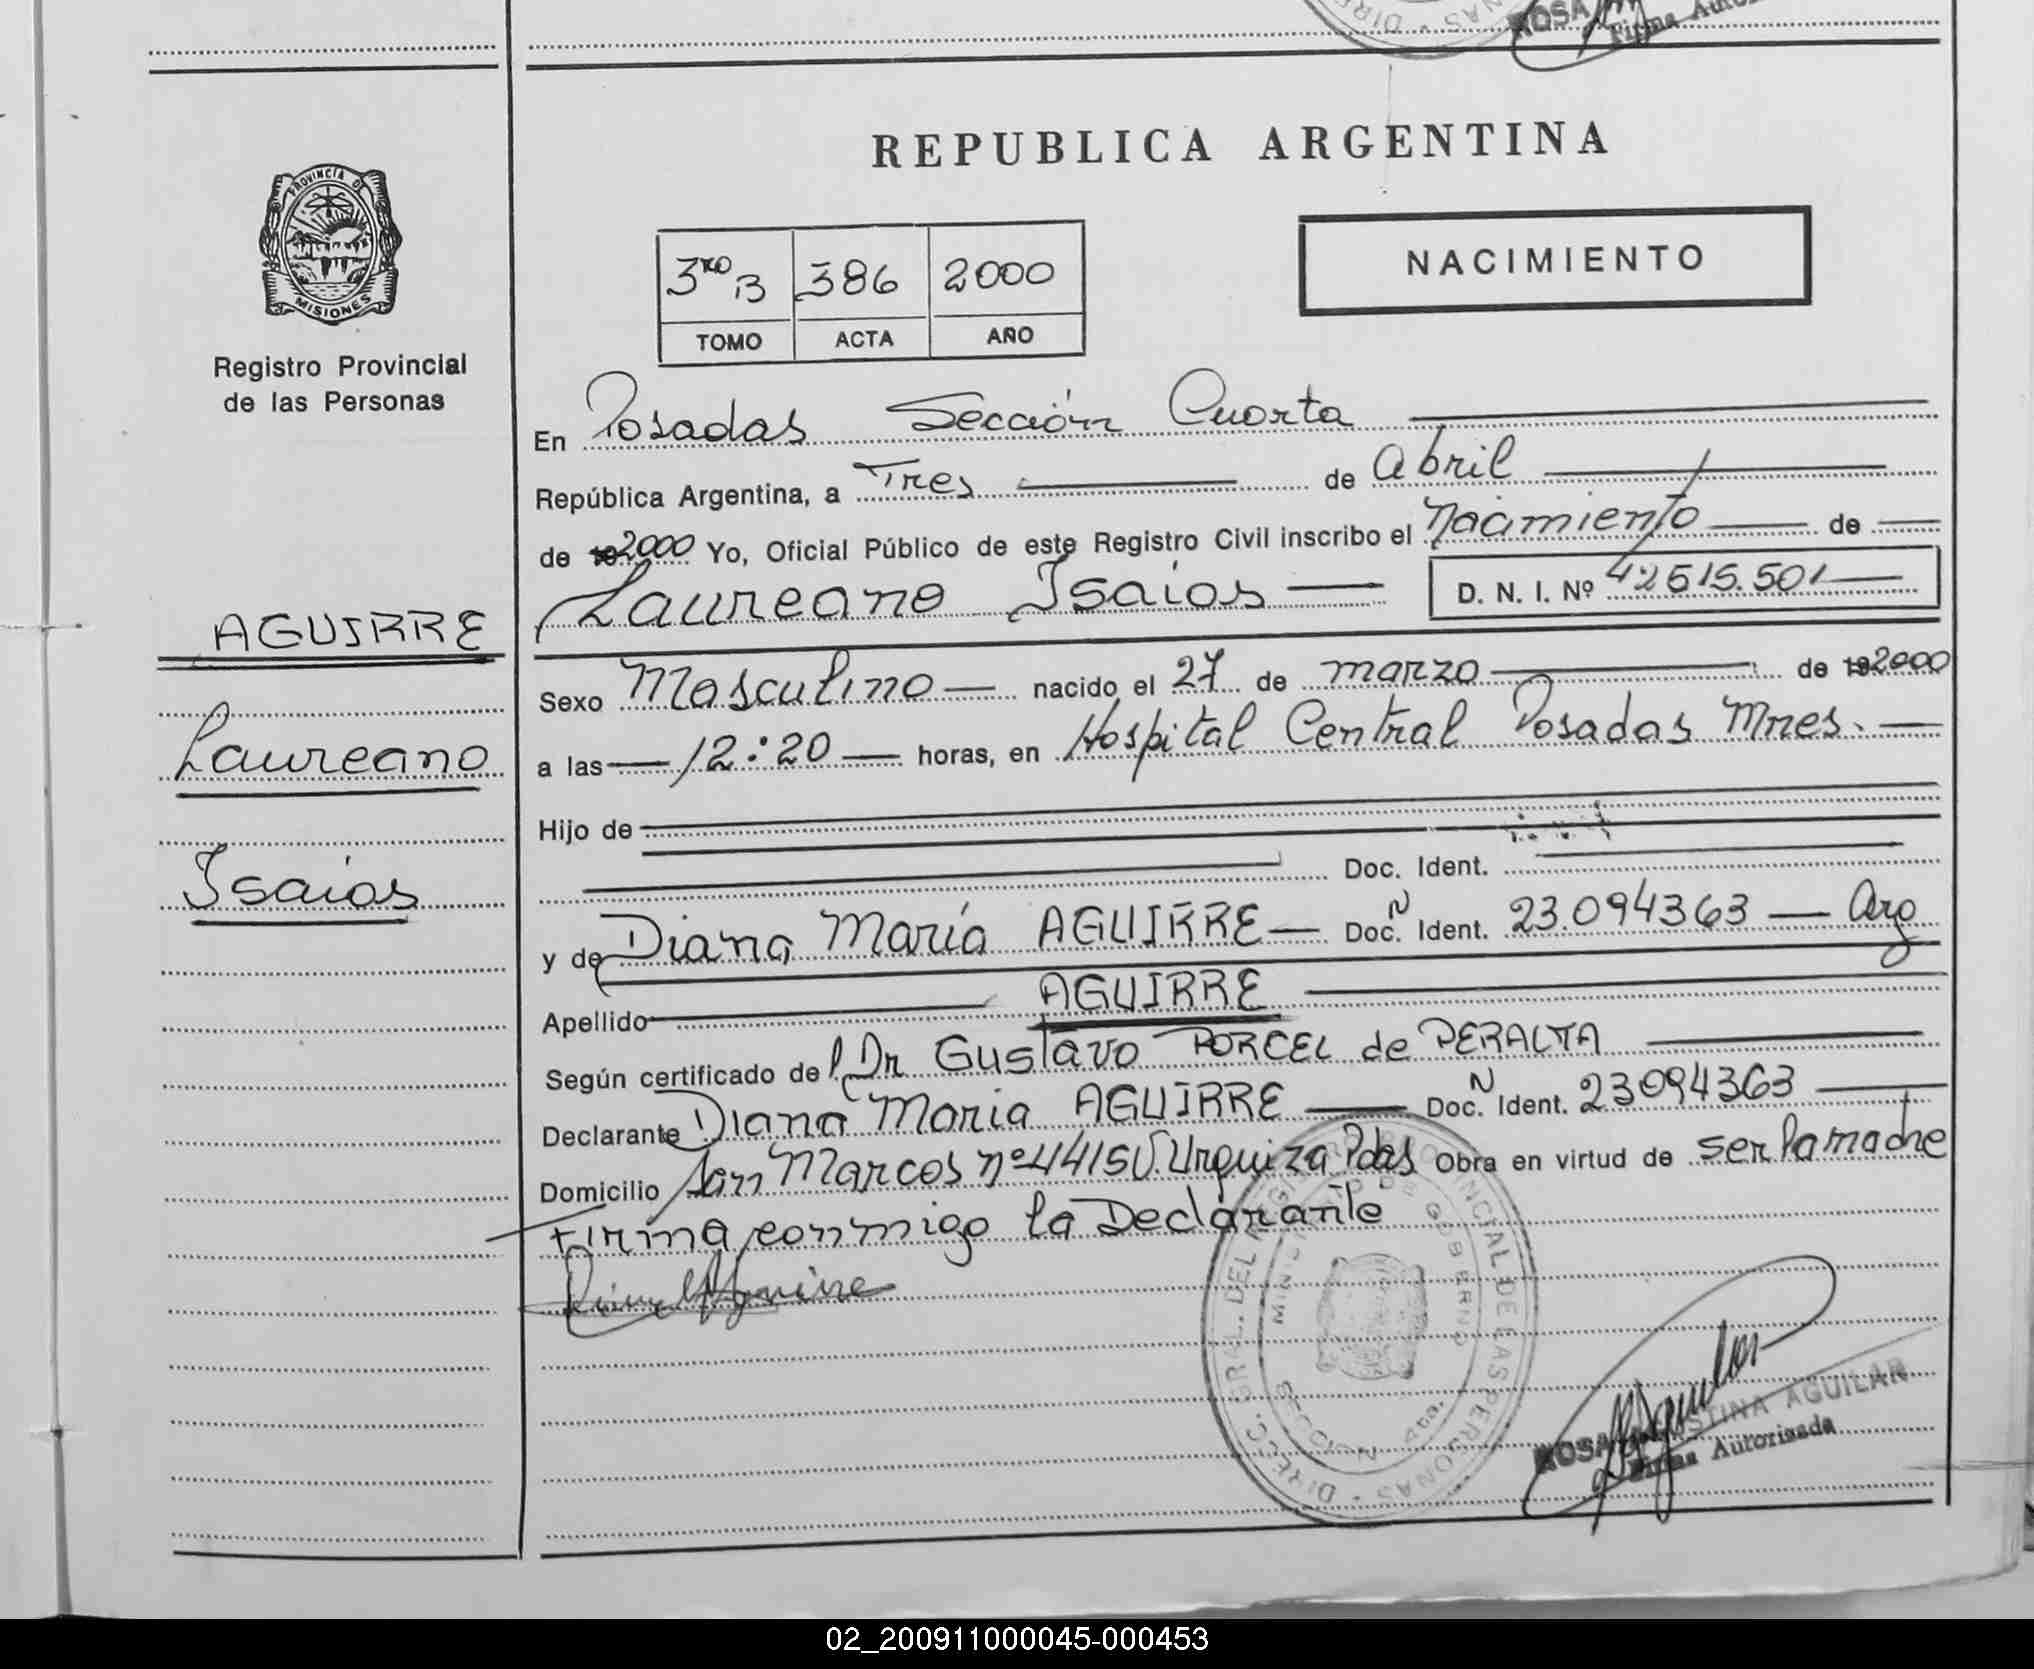 REPUBLICA ARGENTINA
PROVINCIA DE
MISIONES
Registro Provincial
de las Personas
NACIMIENTO
3ro B 386 2000
TOMO ACTA AÑO
En Posadas Sección Cuarta
República Argentina, a Tres de Abril
de 2000 Yo, Oficial Público de este Registro Civil inscribo el Nacimiento de
Laureano Isaias D. N. I. Nº 42515.501
AGUIRRE
Laureano
Isaias
Sexo Masculino nacido el 27 de marzo de 192000
a las 12:20 horas, en Hospital Central Posadas Mnes.
Hijo de
Doc. Ident.
y de Diana María AGUIRRE Doc. N Ident. 23.094363 Arg
Apellido AGUIRRE
Según certificado del Dr Gustavo PORCEL de PERALTA
Declarante Diana Maria AGUIRRE Doc. N Ident. 23094363
Domicilio San Marcos nº 4415 V. Urquiza Pdas Obra en virtud de ser la madre
Firma conmigo la Declarante
DIREC. GRAL. DEL REGISTRO PROVINCIAL DE LAS PERSONAS
MINISTERIO DE GOBIERNO
SECCION 4ta.
ROSA AGUSTINA AGUILAR
Firma Autorizada
02_200911000045-000453